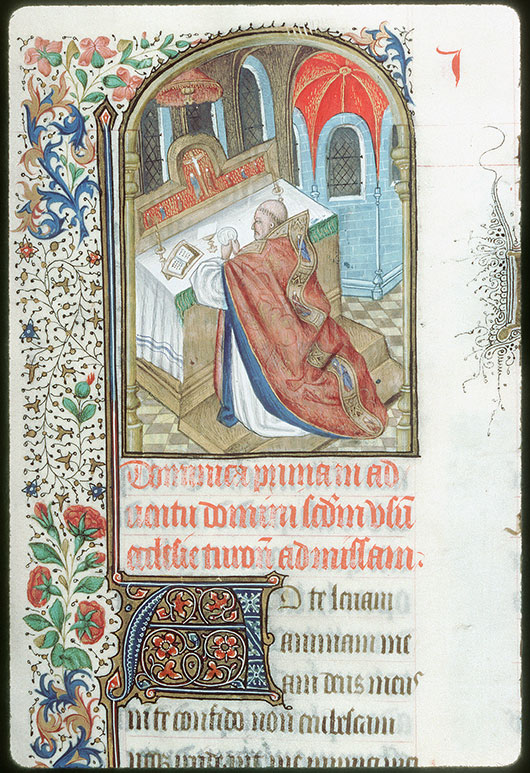 Dominica prima in ad
uentu domini scdm vsū
ecclesie turoñ ad missam.
AD te leuaui
animam me
am deus meus
in te confido non erubescam